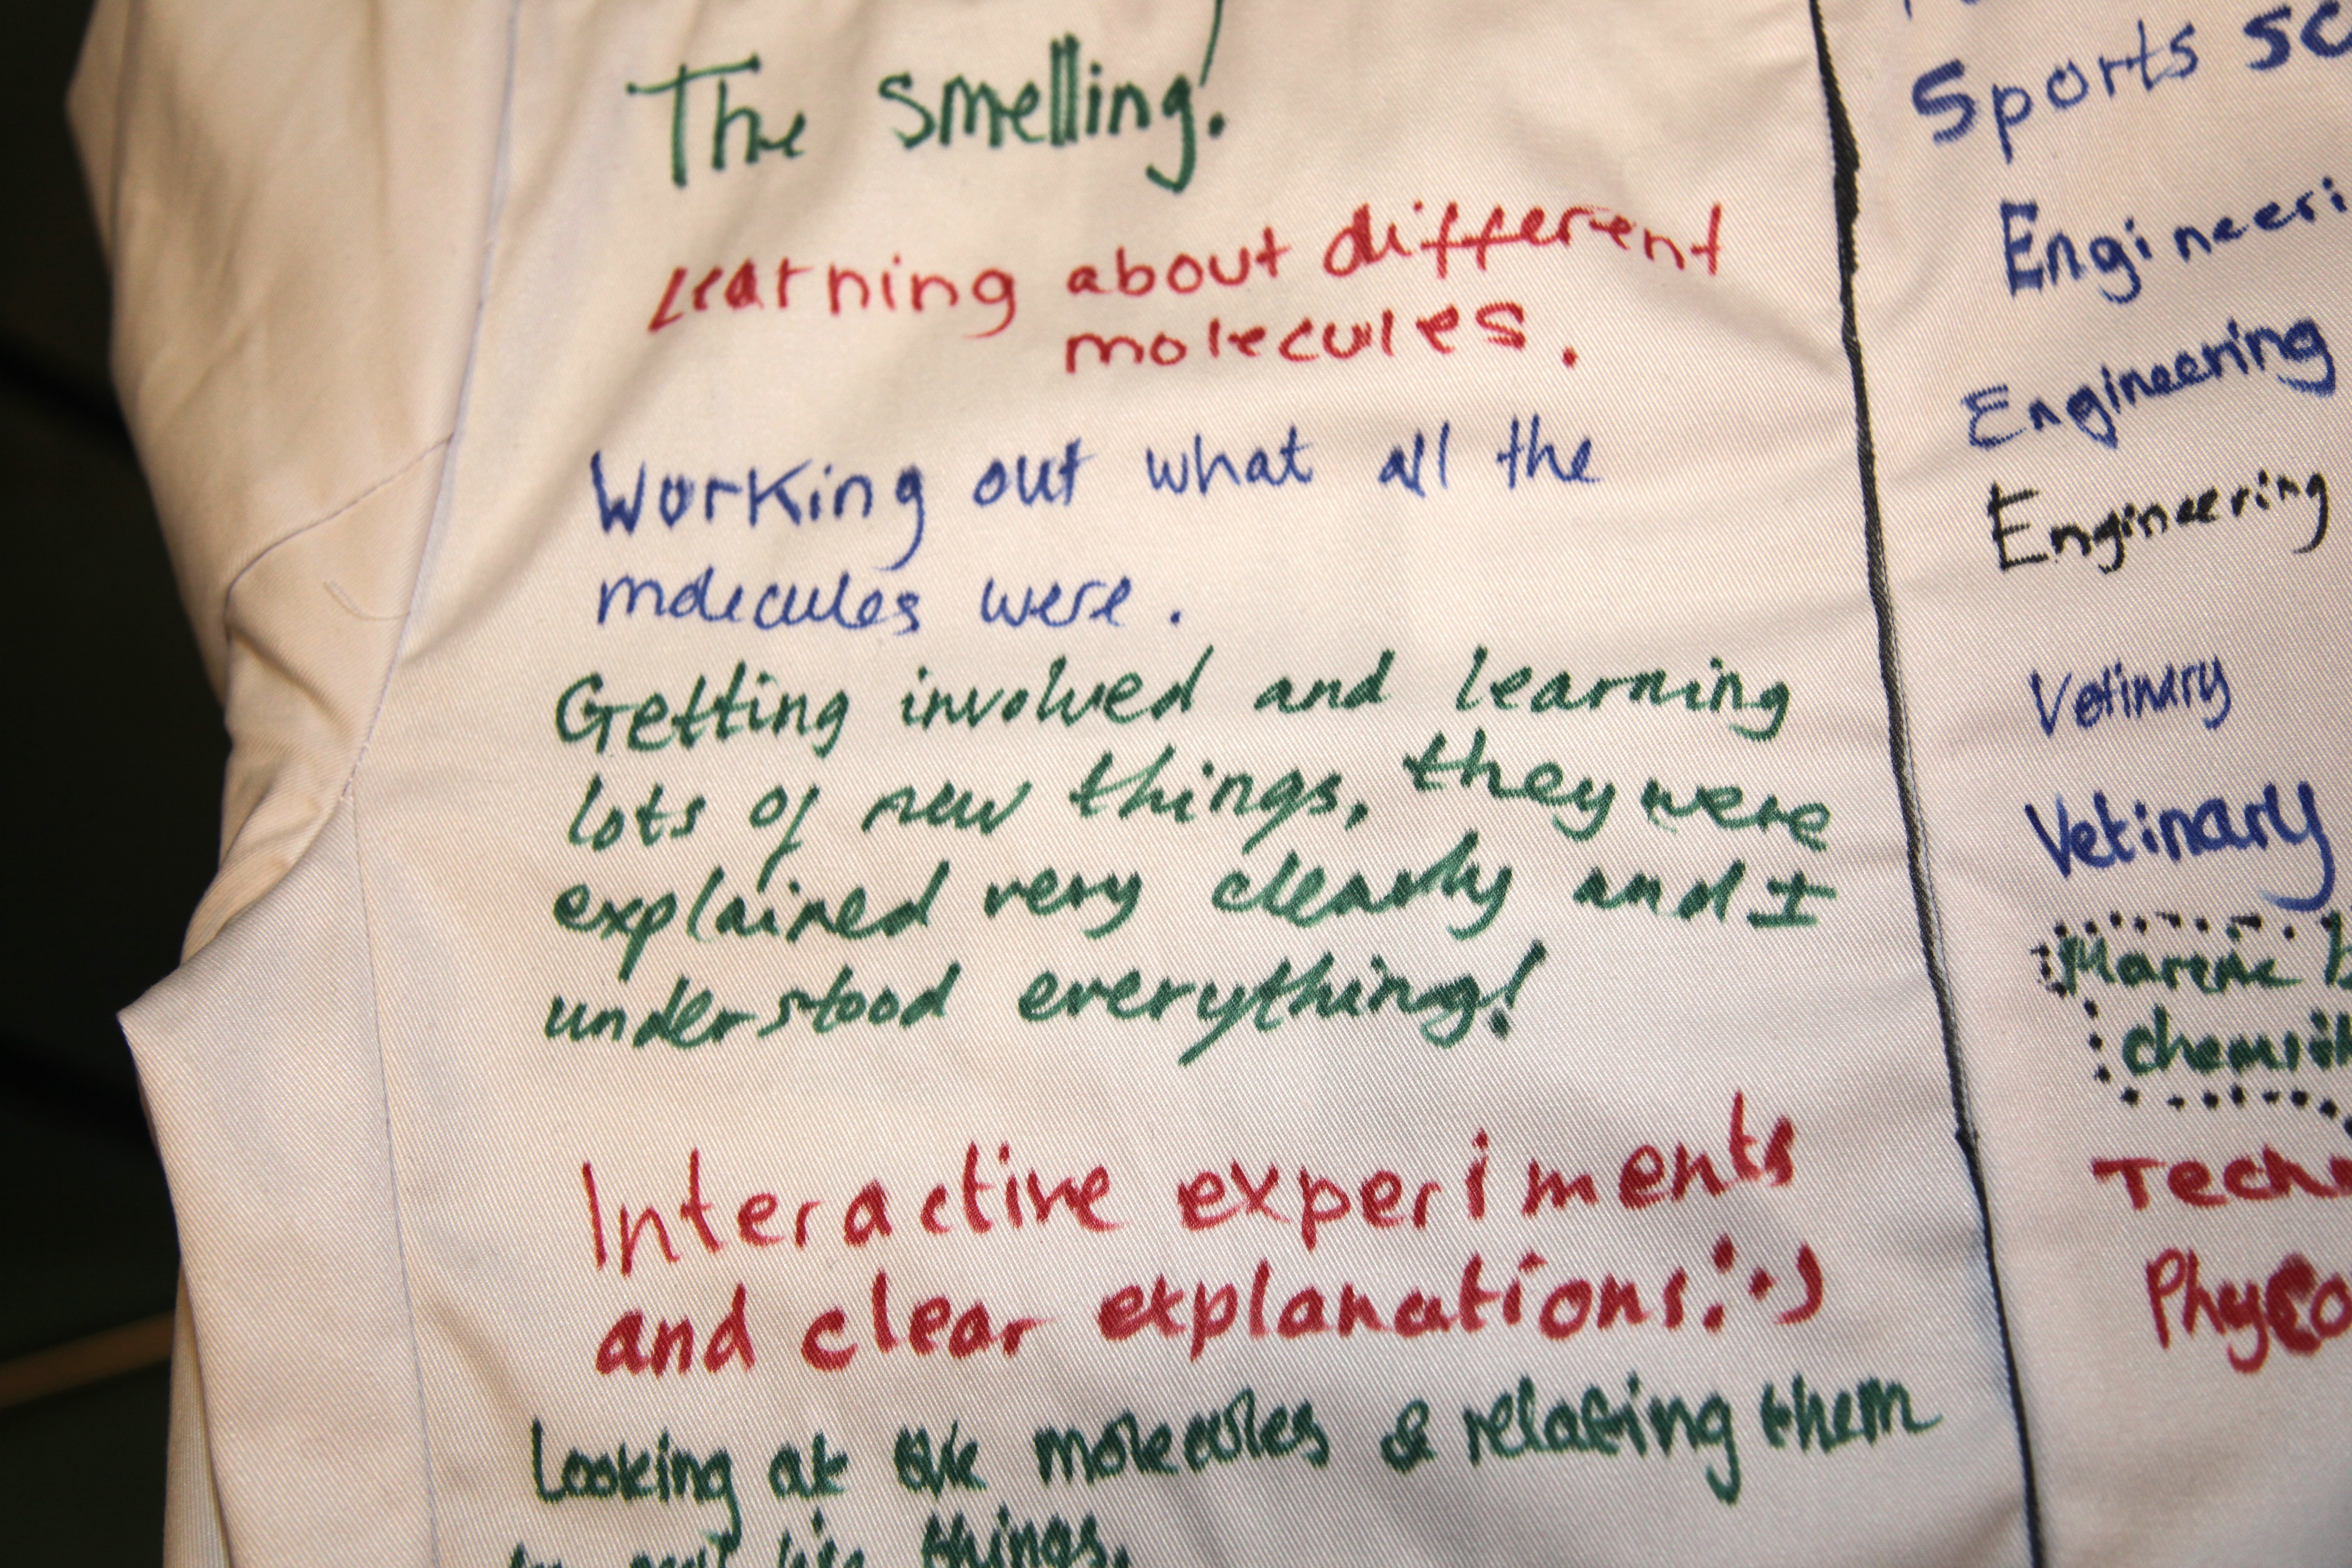 The smelling!
Learning about different
molecules.
Working out what all the
molecules were.
Getting involved and learning
lots of new things, they were
explained very clearly and I
understood everything!
Interactive experiments
and clear explanations! :)
Looking at the molecules & relating them
to real life things.
Sports sc
Engineeri
Engineering
Engineering
Vetinary
Vetinary
Marine b
chemist
Tech
Phys